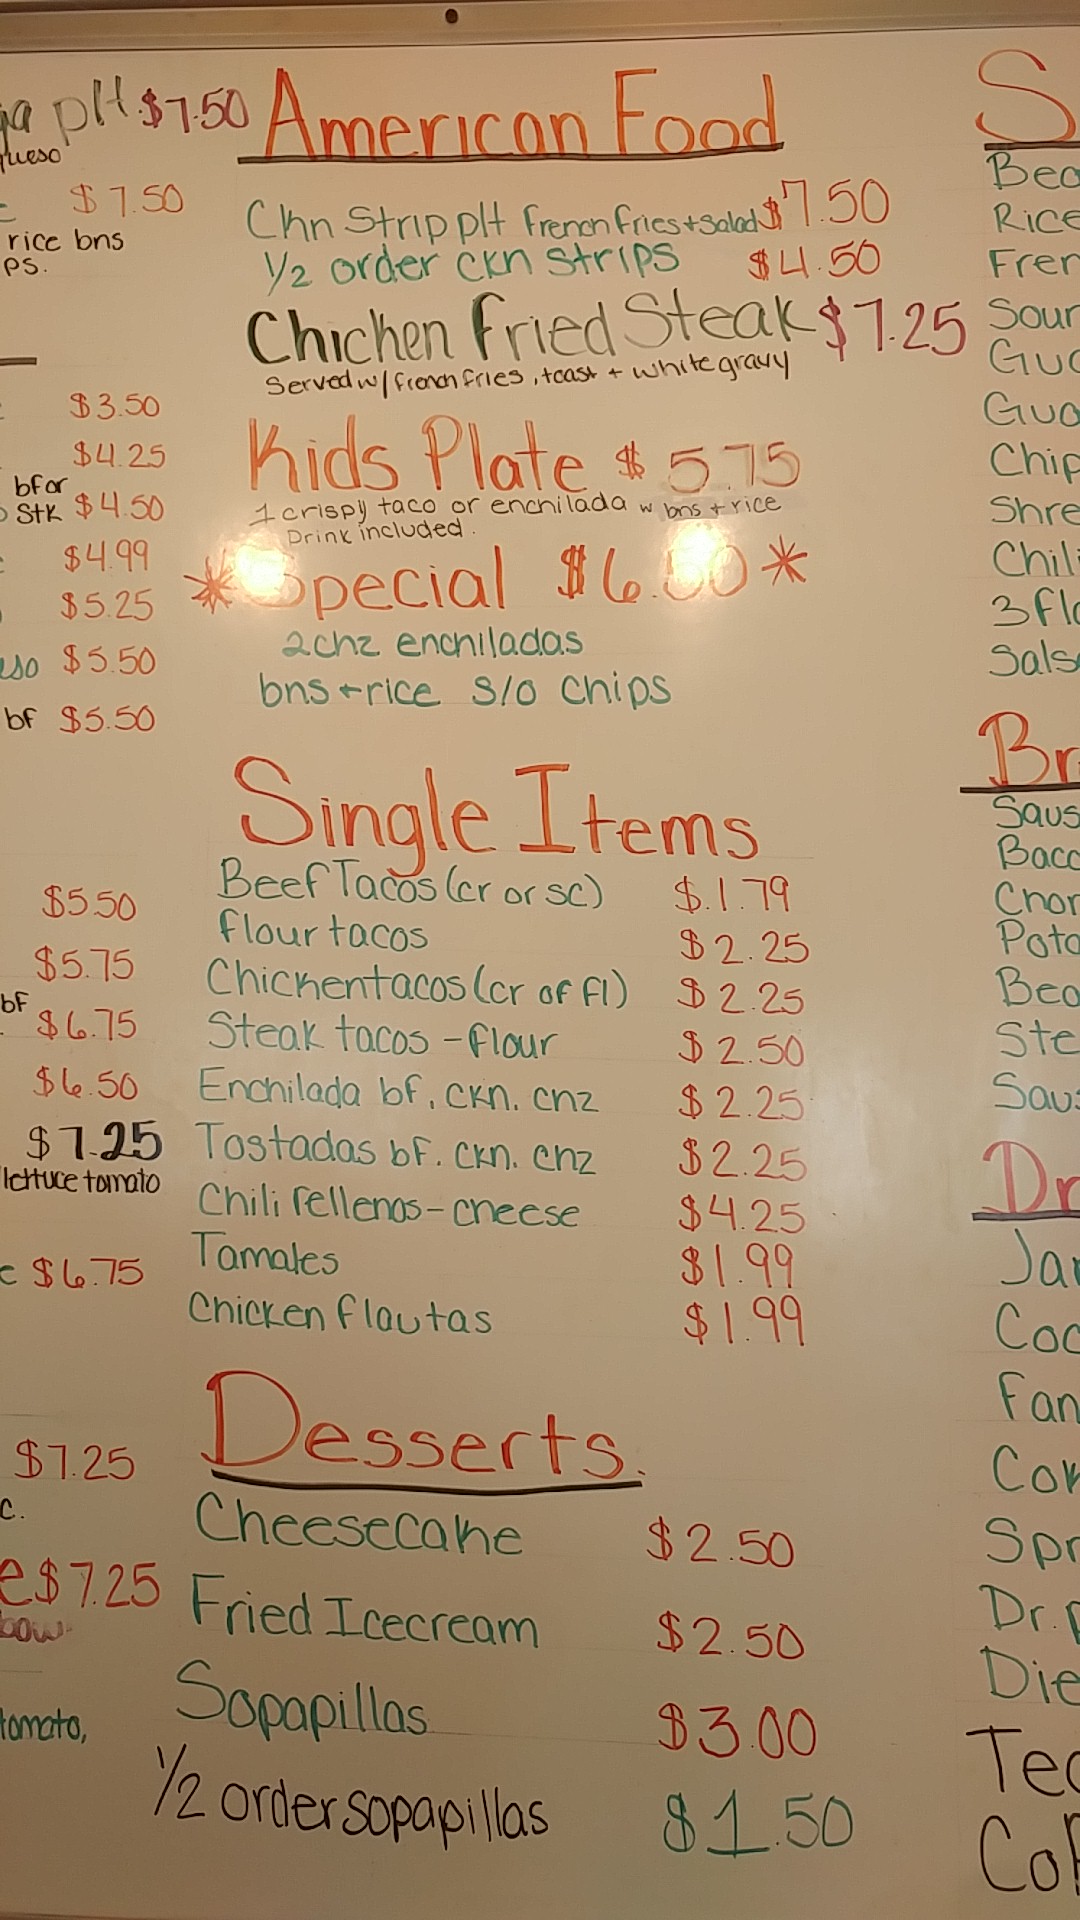 plt $7.50
queso
$7.50
rice bns
ps.
$3.50
$4.25
bf or
Stk $4.50
$4.99
$5.25
$5.50
bf $5.50
$5.50
$5.75
bf
$6.75
$6.50
$7.25
lettuce tomato
$6.75
$7.25
c.
$7.25
tomato,
American Food
Ckn Strip plt french fries + salad $7.50
1/2 order ckn strips $4.50
Chicken Fried Steak $7.25
Served w/ french fries, toast + white gravy
Kids Plate $5.75
1 crispy taco or enchilada w bns + rice
Drink included.
*Special $6.50*
2 chz enchiladas
bns + rice s/o chips
Single Items
Beef Tacos (cr or sc) $.1.79
flour tacos $2.25
Chicken tacos (cr of fl) $2.25
Steak tacos - flour $2.50
Enchilada bf. ckn. chz $2.25
Tostadas bf. ckn. chz $2.25
Chili rellenos - cheese $4.25
Tamales $1.99
Chicken flautas $1.99
Desserts.
Cheesecake $2.50
Fried Icecream $2.50
Sopapillas $3.00
1/2 order sopapillas $1.50
S
Bea
Rice
Fren
Sour
Gua
Gua
Chip
Shre
Chili
3 flo
Salsa
Br
Saus
Baco
Chor
Pota
Bea
Ste
Saus
Dr
Jar
Coc
Fan
Spr
Dr. P
Die
Tea
Cof